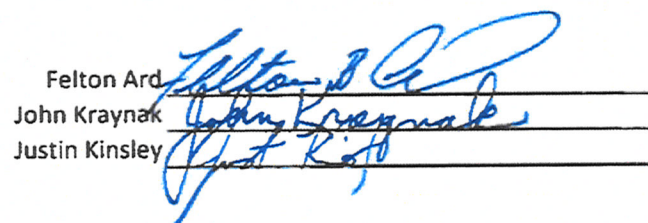 Felton Ard Felton B A
John Kraynak John Kraynak
Justin Kinsley Just